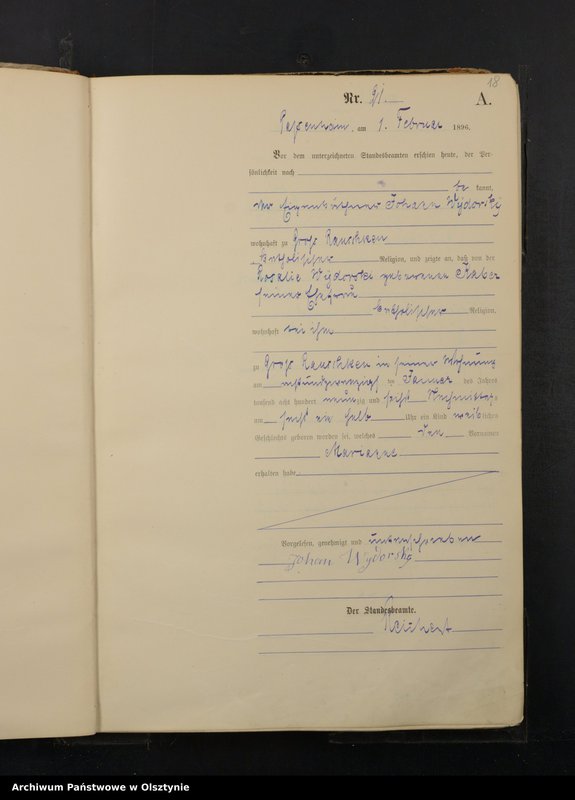 18
Nr. 21. A.
Passenheim, am 1. Februar 1896.
Vor dem unterzeichneten Standesbeamten erschien heute, der Per-
sönlichkeit nach
be kannt,
der Eigenkäthner Johann Wydorski
wohnhaft zu Groß Rauschken
katholischer Religion, und zeigte an, daß von der
Rosalie Wydorski geborenen
seiner Ehefrau
katholischer Religion,
wohnhaft bei ihm
zu Groß Rauschken in seiner Wohnung
am des Januar des Jahres
tausend acht hundert neunzig und sechs Nachmittags
um sechs ein halb Uhr ein Kind weiblichen
Geschlechts geboren worden sei, welches den Vornamen
Marianne
erhalten habe
Vorgelesen, genehmigt und unterschrieben
Johann Wydorski
Der Standesbeamte.
Archiwum Państwowe w Olsztynie